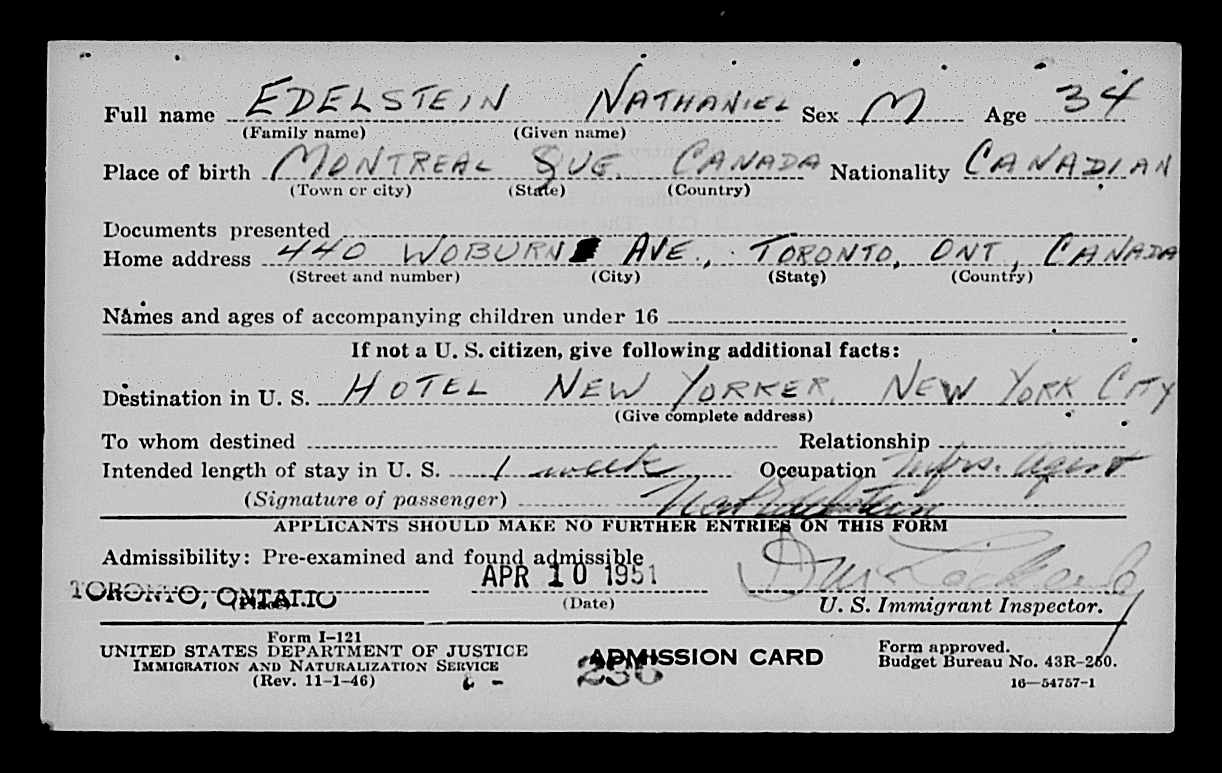 Full name EDELSTEIN NATHANIEL Sex M Age 34
(Family name) (Given name)
Place of birth MONTREAL QUE. CANADA Nationality CANADIAN
(Town or city) (State) (Country)
Documents presented
Home address 440 WOBURN AVE., TORONTO, ONT, CANADA
(Street and number) (City) (State) (Country)
Names and ages of accompanying children under 16
If not a U. S. citizen, give following additional facts:
Destination in U. S. HOTEL NEW YORKER, NEW YORK CITY
(Give complete address)
To whom destined Relationship
Intended length of stay in U. S. 1 week Occupation Mfrs. Agent
(Signature of passenger) Nat Edelstein
APPLICANTS SHOULD MAKE NO FURTHER ENTRIES ON THIS FORM
Admissibility: Pre-examined and found admissible
TORONTO, ONTARIO APR 10 1951
(Place) (Date) U. S. Immigrant Inspector.
Form I-121
UNITED STATES DEPARTMENT OF JUSTICE
IMMIGRATION AND NATURALIZATION SERVICE
(Rev. 11-1-46)
ADMISSION CARD
Form approved.
Budget Bureau No. 43R-250.
16—54757-1